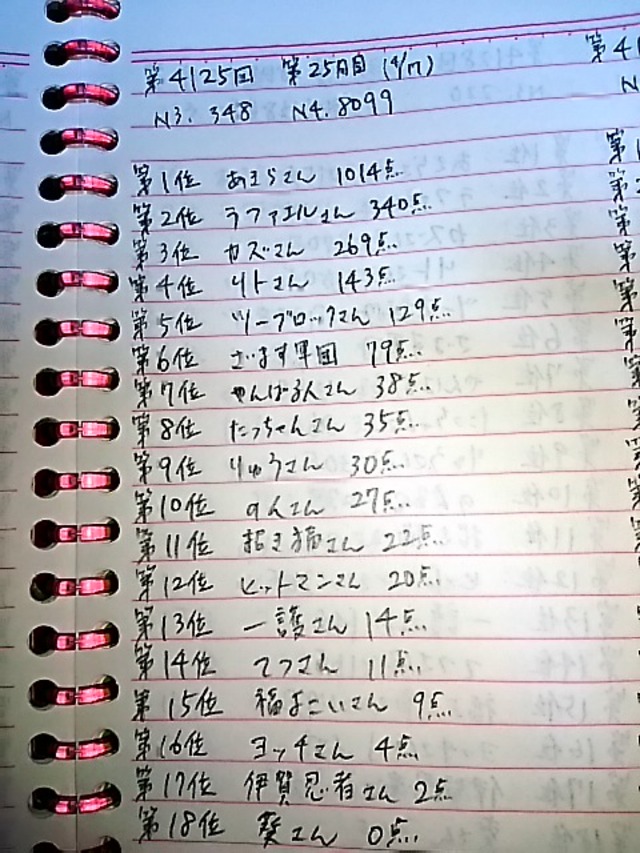 第4125回 第25月目 (4/17)
N3. 348 N4. 8099
第1位 あきらさん 1014点
第2位 ラファエルさん 340点
第3位 カズさん 269点
第4位 リトさん 143点
第5位 ツーブロックさん 129点
第6位 ざます軍団 79点
第7位 やんばる人さん 38点
第8位 たっちゃんさん 35点
第9位 りゅうさん 30点
第10位 のんさん 27点
第11位 招き猫さん 22点
第12位 ヒットマンさん 20点
第13位 一護さん 14点
第14位 てつさん 11点
第15位 福よこいさん 9点
第16位 ヨッチさん 4点
第17位 伊賀忍者さん 2点
第18位 葵さん 0点
第4
N
第1